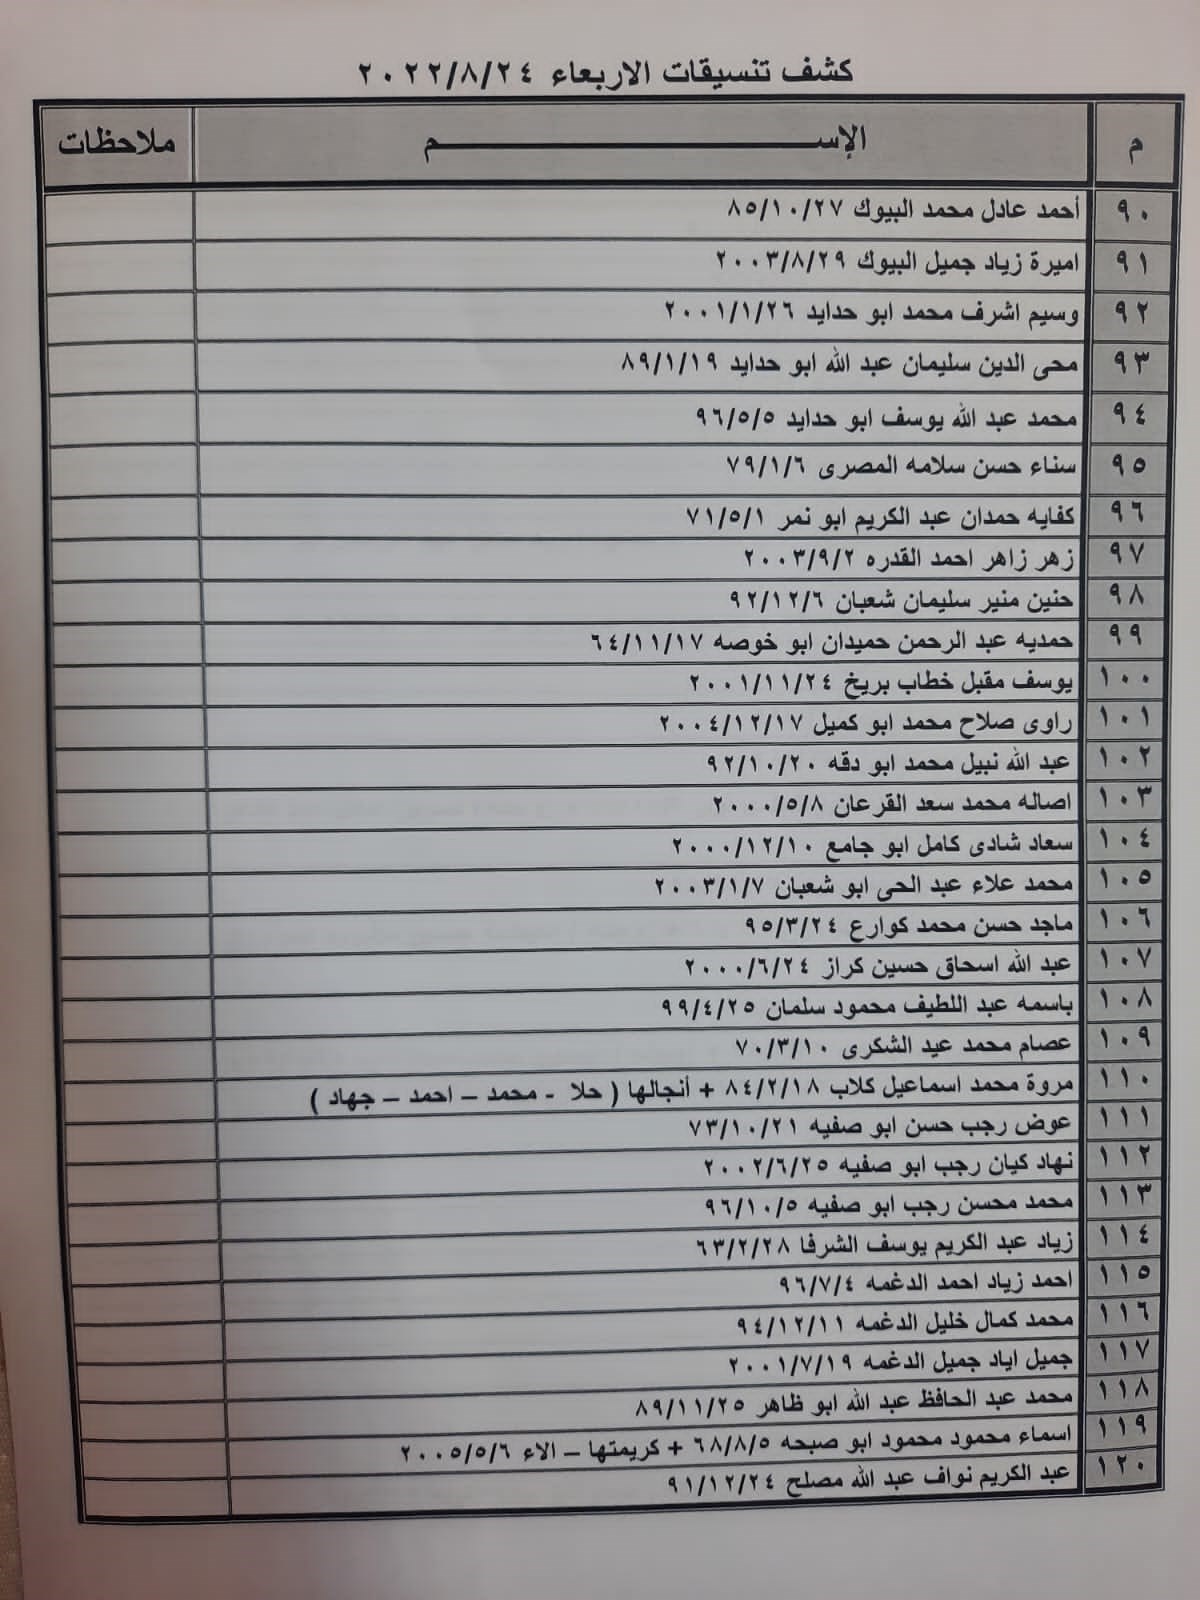 كشف تنسيقات الاربعاء ٢٠٢٢/٨/٢٤
م الإســـــــــــــم ملاحظات
٩٠ أحمد عادل محمد البيوك ٨٥/١٠/٢٧
٩١ اميرة زياد جميل البيوك ٢٠٠٣/٨/٢٩
٩٢ وسيم اشرف محمد ابو حدايد ٢٠٠١/١/٢٦
٩٣ محى الدين سليمان عبد الله ابو حدايد ٨٩/١/١٩
٩٤ محمد عبد الله يوسف ابو حدايد ٩٦/٥/٥
٩٥ سناء حسن سلامه المصرى ٧٩/١/٦
٩٦ كفايه حمدان عبد الكريم ابو نمر ٧١/٥/١
٩٧ زهر زاهر احمد القدره ٢٠٠٣/٩/٢
٩٨ حنين منير سليمان شعبان ٩٢/١٢/٦
٩٩ حمديه عبد الرحمن حميدان ابو خوصه ٦٤/١١/١٧
١٠٠ يوسف مقبل خطاب بريخ ٢٠٠١/١١/٢٤
١٠١ راوى صلاح محمد ابو كميل ٢٠٠٤/١٢/١٧
١٠٢ عبد الله نبيل محمد ابو دقه ٩٢/١٠/٢٠
١٠٣ اصاله محمد سعد القرعان ٢٠٠٠/٥/٨
١٠٤ سعاد شادى كامل ابو جامع ٢٠٠٠/١٢/١٠
١٠٥ محمد علاء عبد الحى ابو شعبان ٢٠٠٣/١/٧
١٠٦ ماجد حسن محمد كوارع ٩٥/٣/٢٤
١٠٧ عبد الله اسحاق حسين كراز ٢٠٠٠/٦/٢٤
١٠٨ باسمه عبد اللطيف محمود سلمان ٩٩/٤/٢٥
١٠٩ عصام محمد عيد الشكرى ٧٠/٣/١٠
١١٠ مروة محمد اسماعيل كلاب ٨٤/٢/١٨ + أنجالها ( حلا - محمد – احمد – جهاد )
١١١ عوض رجب حسن ابو صفيه ٧٣/١٠/٢١
١١٢ نهاد كيان رجب ابو صفيه ٢٠٠٢/٦/٢٥
١١٣ محمد محسن رجب ابو صفيه ٩٦/١٠/٥
١١٤ زياد عبد الكريم يوسف الشرفا ٦٣/٢/٢٨
١١٥ احمد زياد احمد الدغمه ٩٦/٧/٤
١١٦ محمد كمال خليل الدغمه ٩٤/١٢/١١
١١٧ جميل اياد جميل الدغمه ٢٠٠١/٧/١٩
١١٨ محمد عبد الحافظ عبد الله ابو ظاهر ٨٩/١١/٢٥
١١٩ اسماء محمود محمود ابو صبحه ٦٨/٨/٥ + كريمتها – الاء ٢٠٠٥/٥/٦
١٢٠ عبد الكريم نواف عبد الله مصلح ٩١/١٢/٢٤